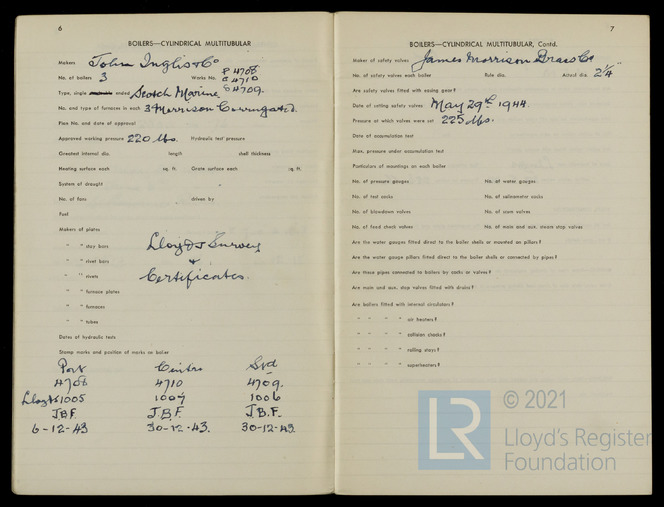 6
BOILERS—CYLINDRICAL MULTITUBULAR
Makers John Inglis & Co
No. of boilers 3 Works No. P 4708
C 4710
Type, single ended Scotch Marine S 4709.
No. and type of furnaces in each 3 Morrison Corrugated.
Plan No. and date of approval
Approved working pressure 220 lbs. Hydraulic test pressure
Greatest internal dia. length shell thickness
Heating surface each sq. ft. Grate surface each sq. ft.
System of draught
No. of fans driven by
Fuel
Makers of plates
" " stay bars Lloyds Survey
" " rivet bars &
" " rivets Certificates.
" " furnace plates
" " furnaces
" " tubes
Dates of hydraulic tests
Stamp marks and position of marks on boiler
Port Centre Stbd
4708 4710 4709.
Lloyds 1005 1007 1006
J.B.F. J.B.F. J.B.F.
6-12-43 30-12-43. 30-12-43.
7
BOILERS—CYLINDRICAL MULTITUBULAR, Contd.
Maker of safety valves James Morrison Brass Co
No. of safety valves each boiler Rule dia. Actual dia. 2¼"
Are safety valves fitted with easing gear?
Date of setting safety valves May 29th 1944.
Pressure at which valves were set 225 lbs.
Date of accumulation test
Max. pressure under accumulation test
Particulars of mountings on each boiler
No. of pressure gauges No. of water gauges
No. of test cocks No. of salinometer cocks
No. of blowdown valves No. of scum valves
No. of feed check valves No. of main and aux. steam stop valves
Are the water gauges fitted direct to the boiler shells or mounted on pillars?
Are the water gauge pillars fitted direct to the boiler shells or connected by pipes?
Are these pipes connected to boilers by cocks or valves?
Are main and aux. stop valves fitted with drains?
Are boilers fitted with internal circulators?
" " " " air heaters?
" " " " collision chocks?
" " " " rolling stays?
" " " " superheaters?
LR
© 2021
Lloyd's Register
Foundation